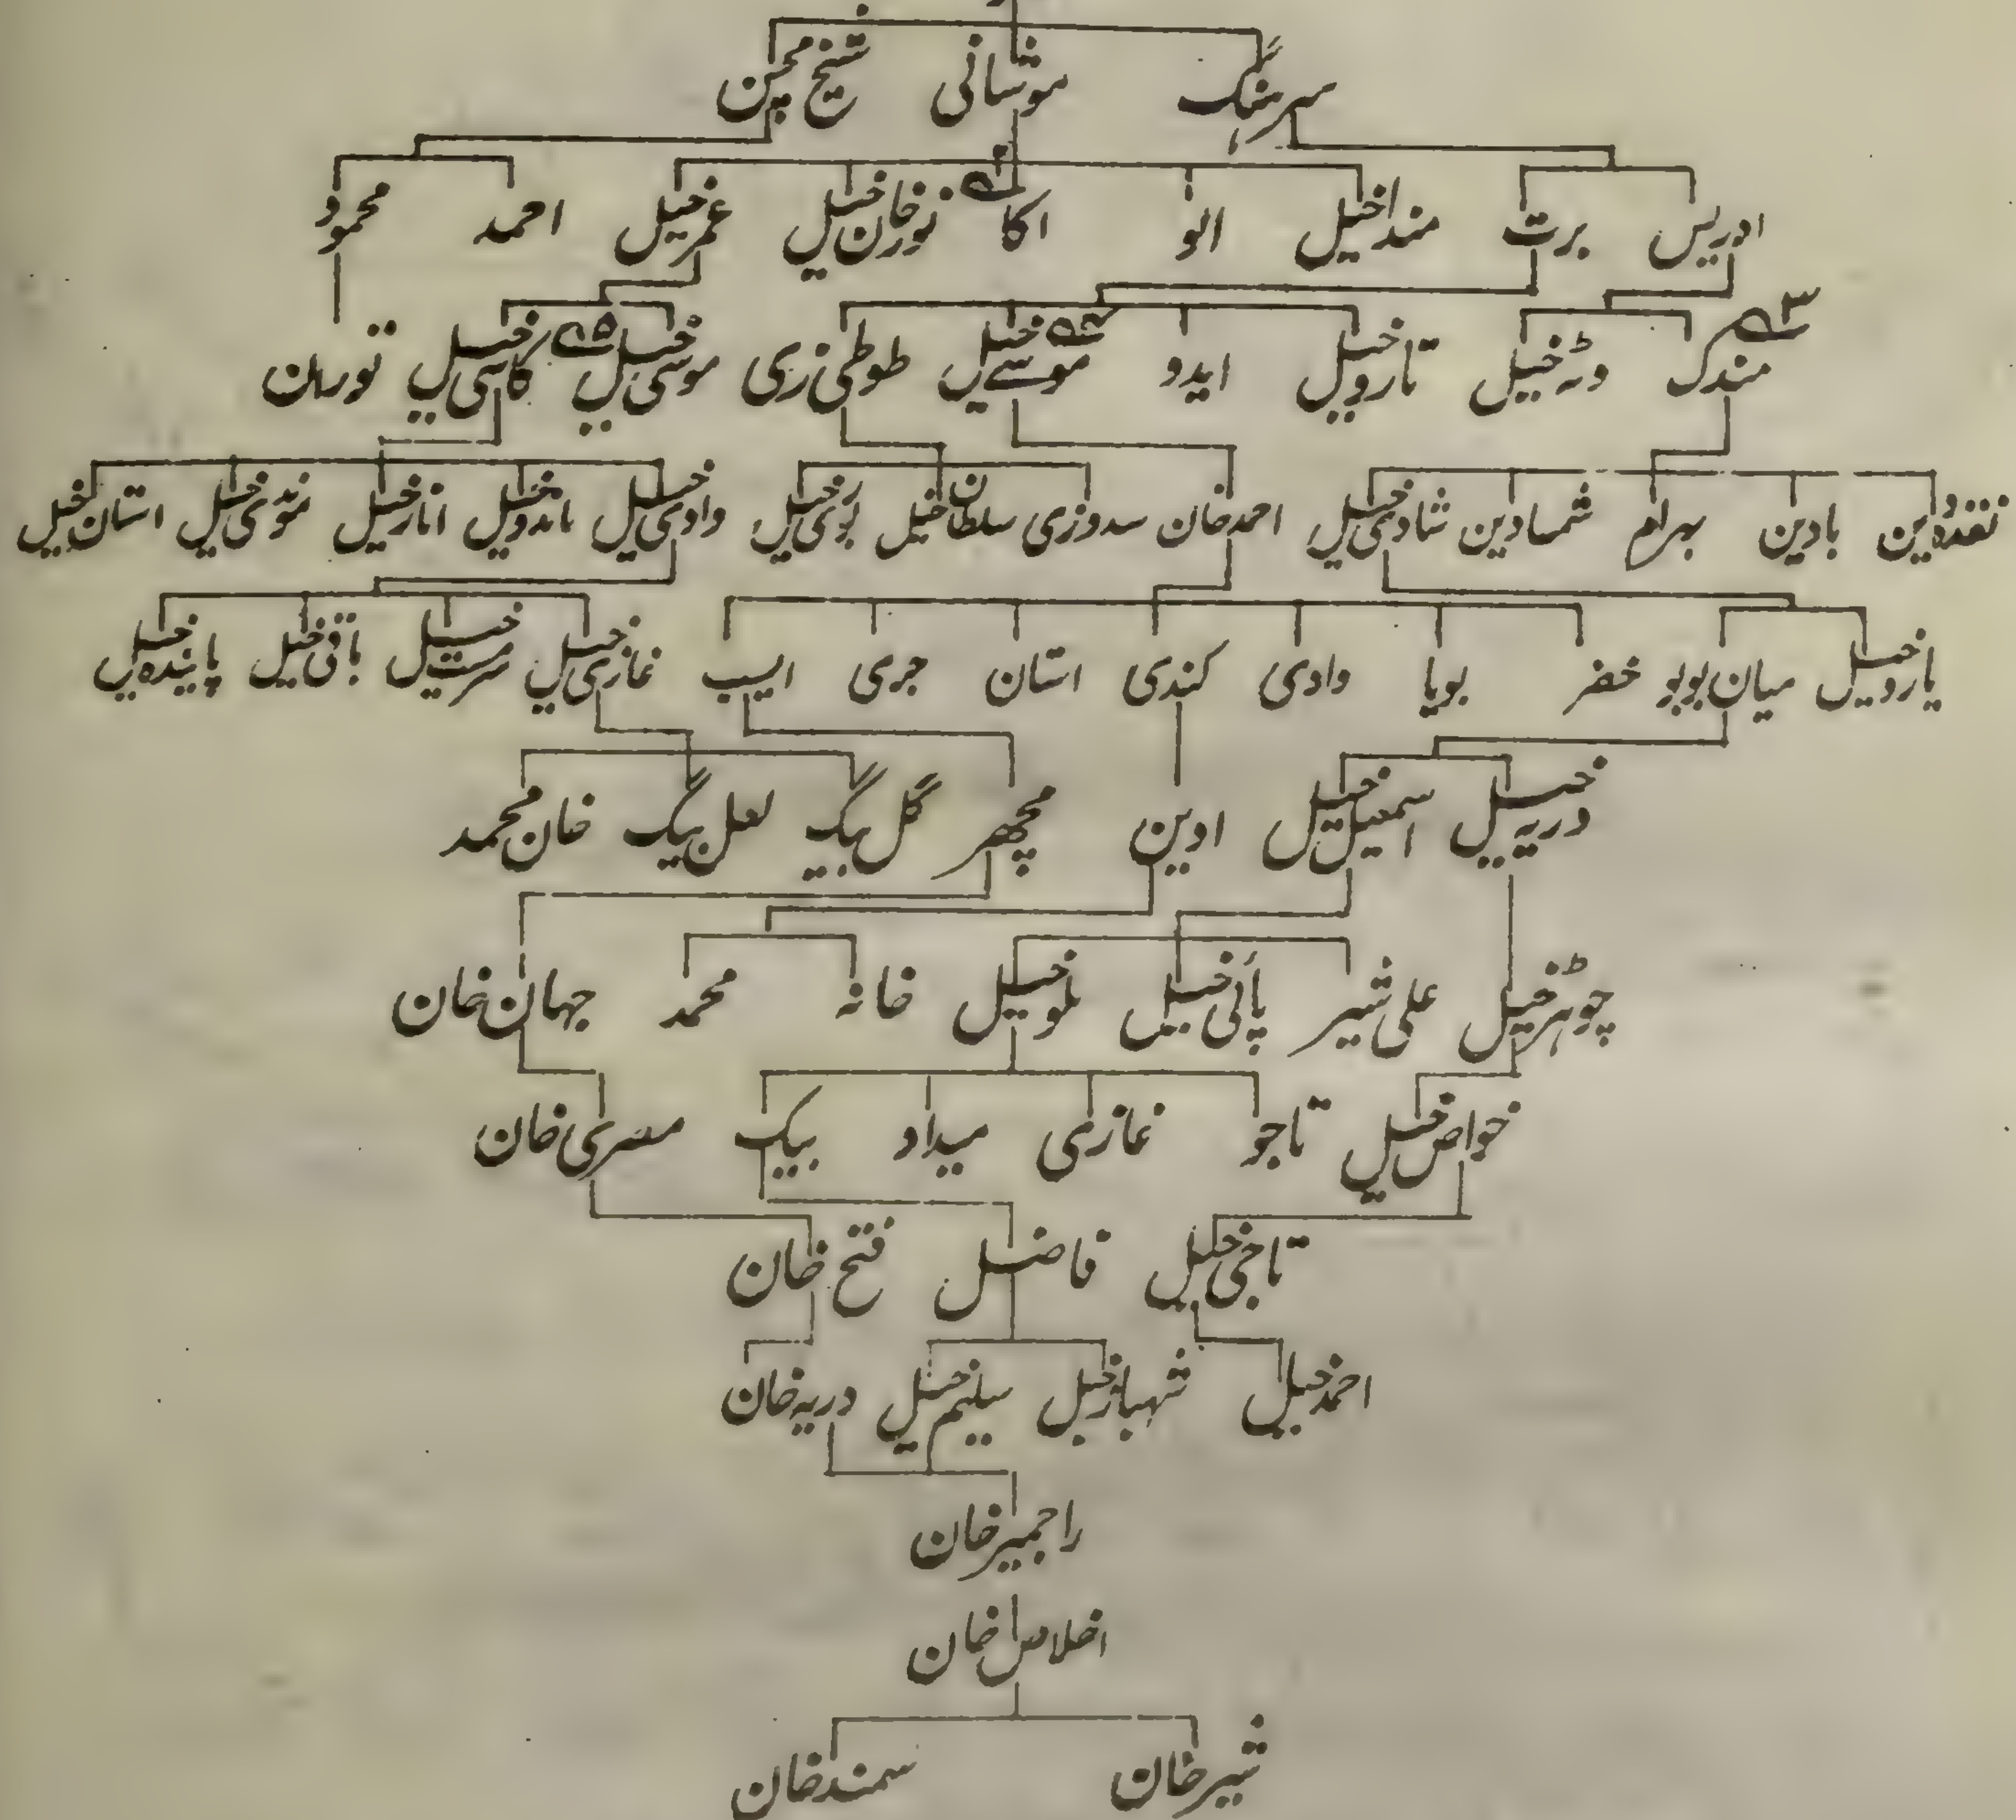 سرہنگ موشانی شیخ محسن
ادریس برت منداخیل الو اکا نورخان خیل عمر خیل احمد محمود
مندک وٹہ خیل تاروخیل ایدو موسےٰ خیل طوطی زی موسی خیل کاسی خیل نورہان
بادین بہرام شمسادین شادی خیل احمدخان سدوزی سلطان خیل بوری خیل وادی خیل باندوخیل انارخیل استان خیل
یاروخیل میان بوبو خضر بوپا وادی کندی استان جری ایسب غازی خیل سرمست خیل باقی خیل پایندہ خیل
دریہ خیل اسمعیل خیل ادین مچھر گل بیگ لعل بیگ خان محمد
چوہڑخیل علی شیر پائی خیل بلوخیل خانہ محمد جہان خان
خواص خیل تاجو غازی میداد بیک مصری خان
تاجی خیل فاضل فتح خان
احمدخیل شہباز خیل سلیم خیل دریہ خان
راجمیر خان
اخلاص خان
شیرخان سمندخان